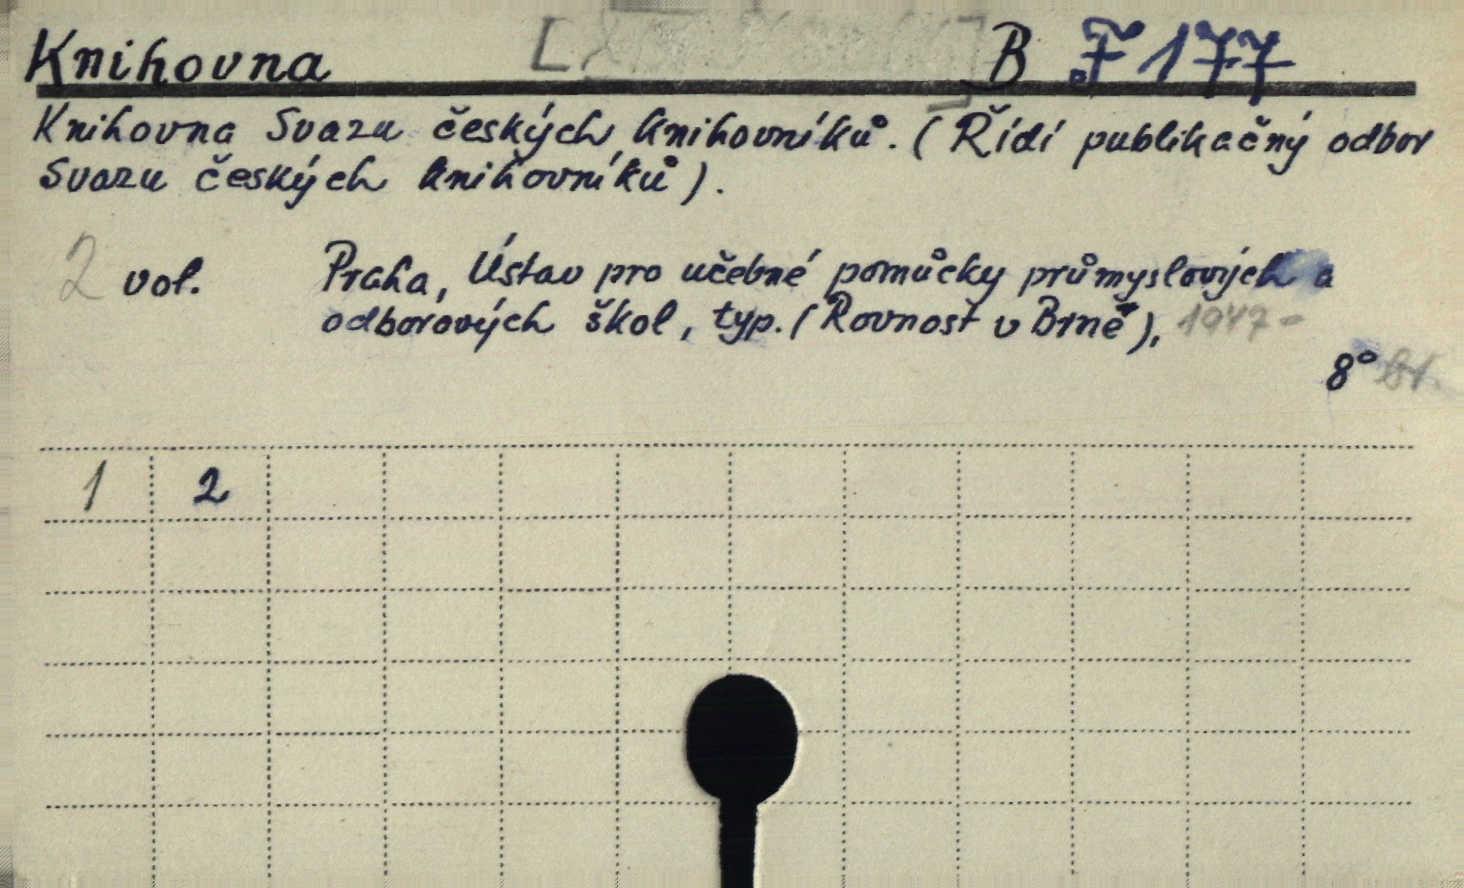 Knihovna B F 177
Knihovna Svazu českých knihovníků. (Řídí publikačný odbor
Svazu českých knihovníků).
2 vol. Praha, Ústav pro učebné pomůcky průmyslových a
odborových škol, typ. (Rovnost v Brně), 1947-
8°
1 2